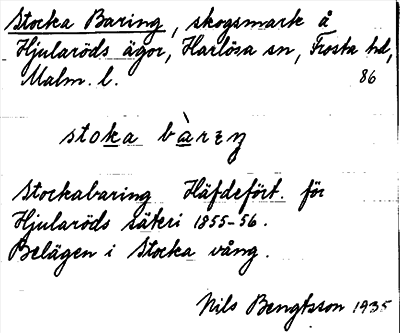 Stocka Baring, skogsmark å
Hjularöds ägor, Harlösa sn, Frosta hd,
Malm. l. 86
stoka bàrɩŋ
Stockabaring Häfdefört. för
Hjularöds säteri 1855-56.
Belägen i Stocka vång.
Nils Bengtsson 1935